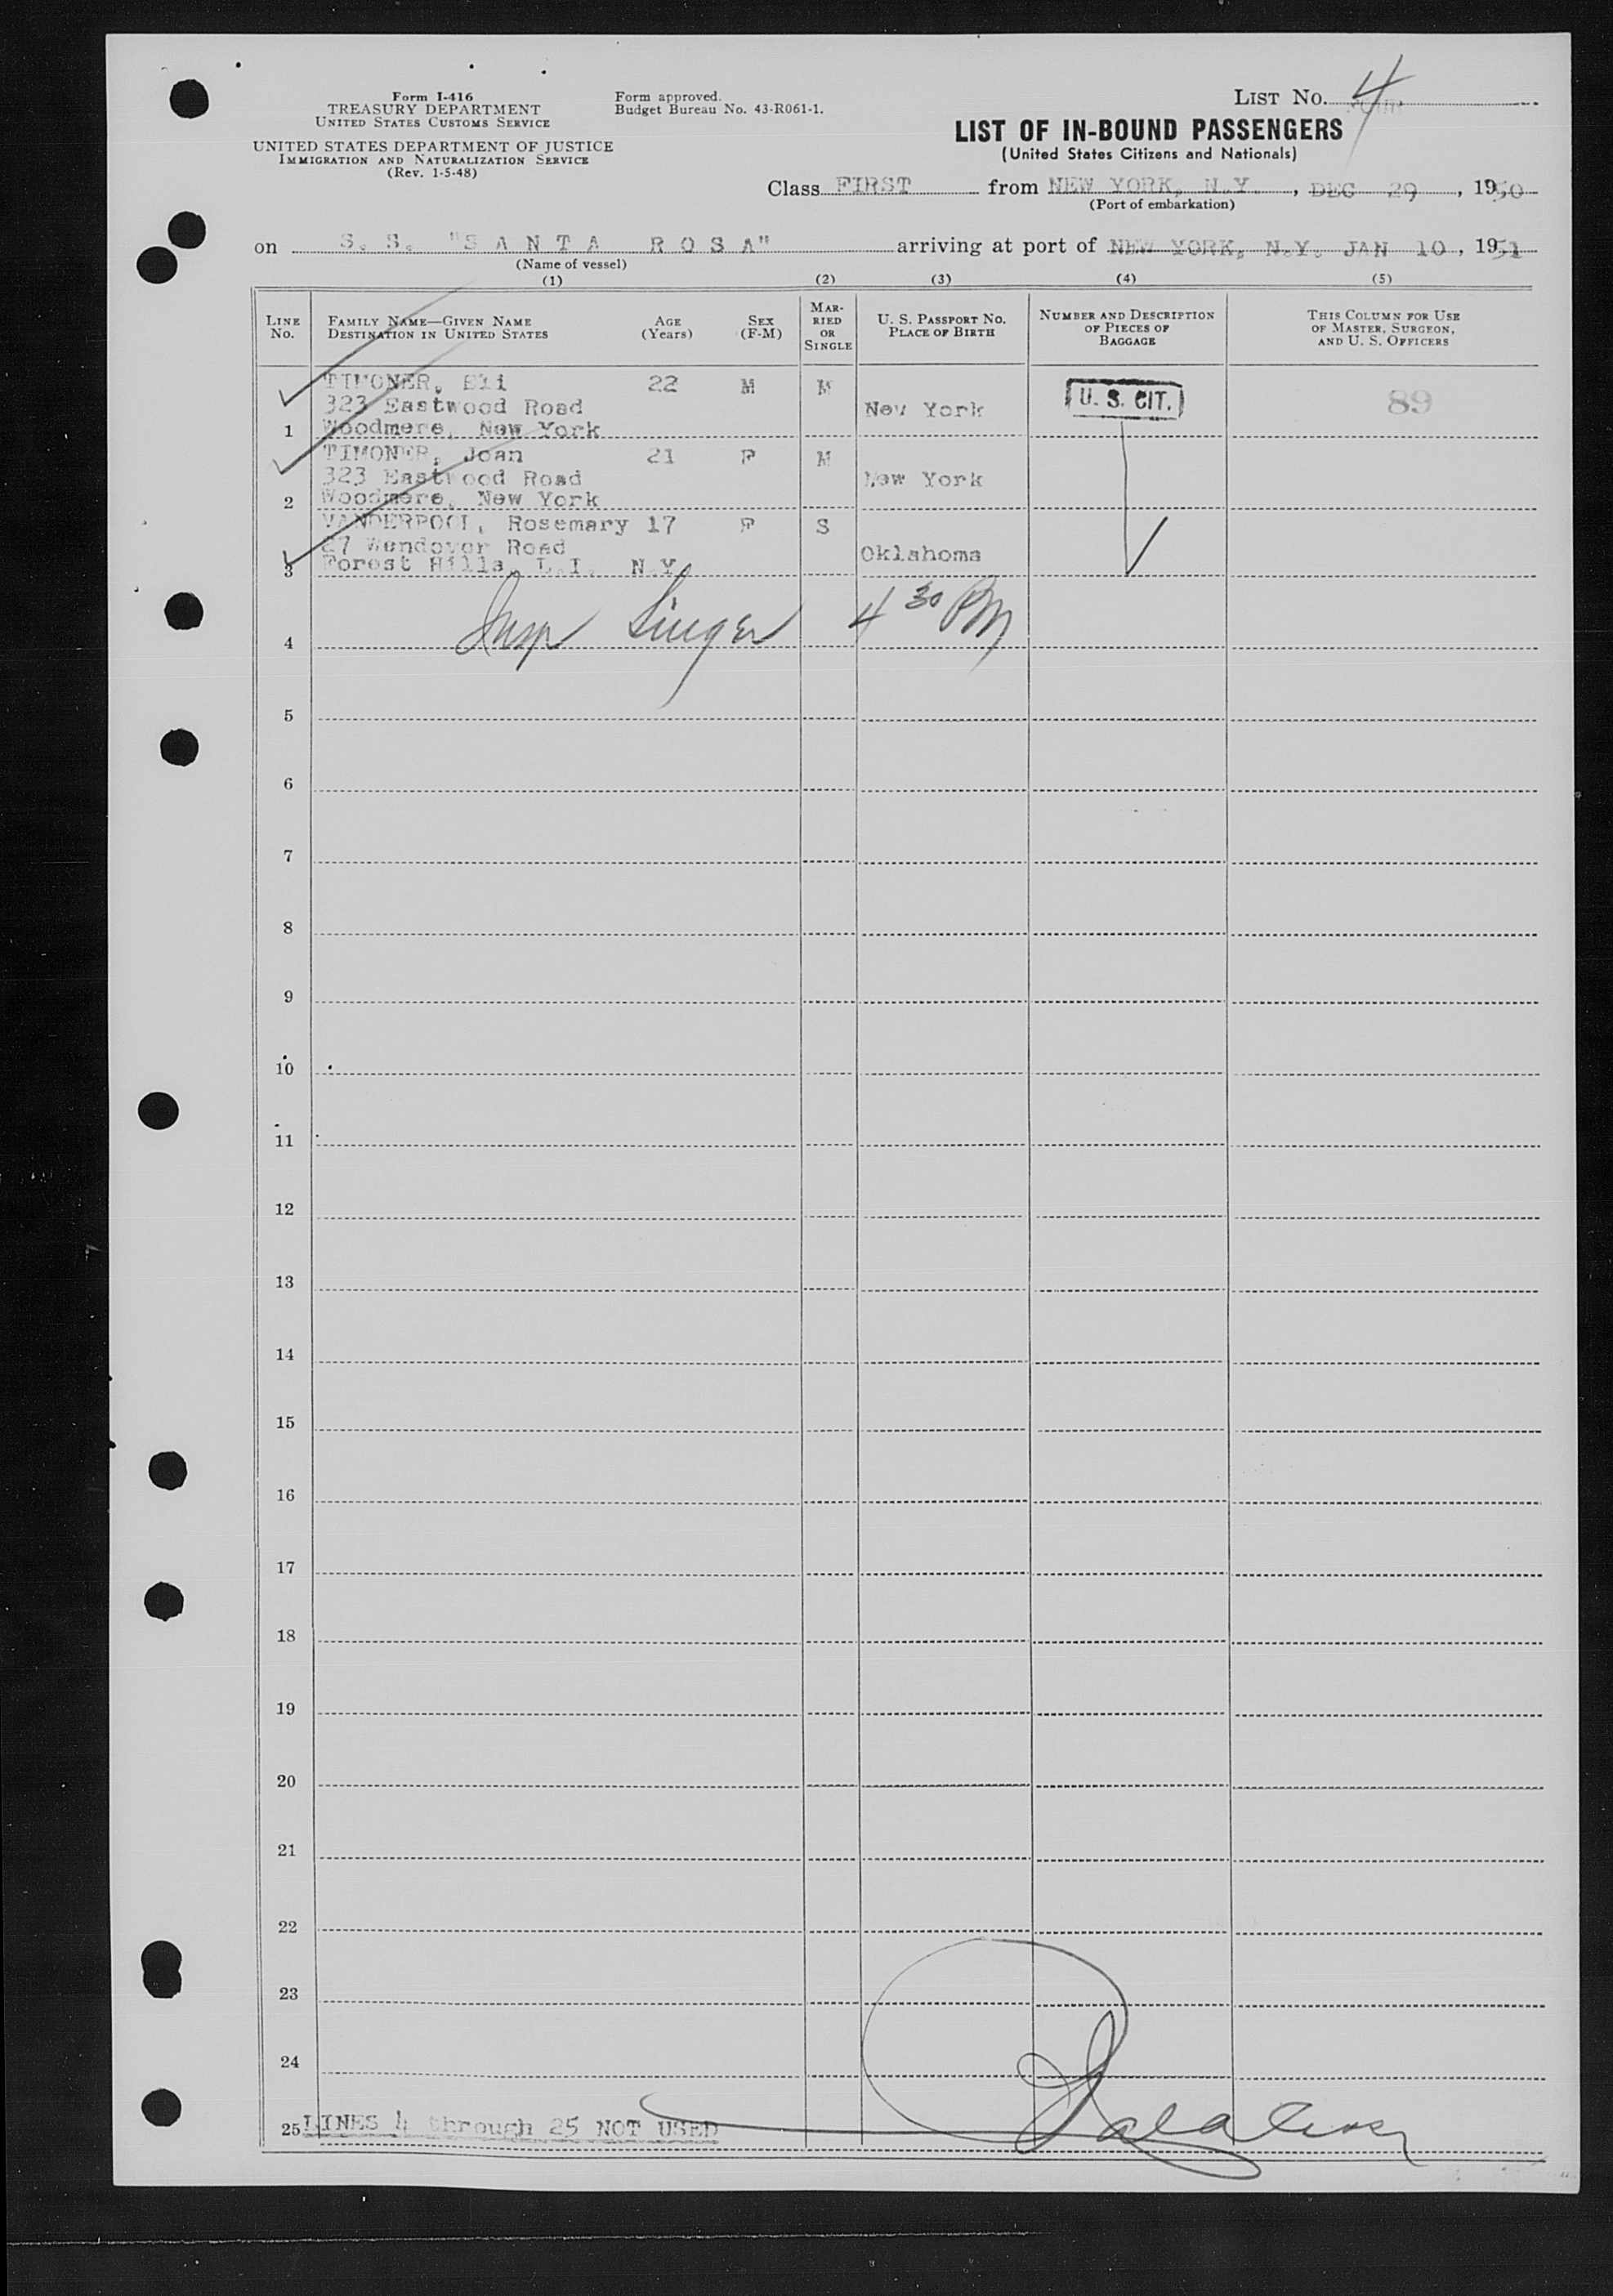 Form I-416
TREASURY DEPARTMENT
UNITED STATES CUSTOMS SERVICE
UNITED STATES DEPARTMENT OF JUSTICE
IMMIGRATION AND NATURALIZATION SERVICE
(Rev. 1-5-48)
Form approved.
Budget Bureau No. 43-R061-1.
LIST No. 4
LIST OF IN-BOUND PASSENGERS
(United States Citizens and Nationals)
Class FIRST from NEW YORK, N.Y., DEC 29, 1950
(Port of embarkation)
on S. S. "SANTA ROSA" arriving at port of NEW YORK, N.Y. JAN 10, 1951
(Name of vessel)
(1) (2) (3) (4) (5)
LINE No.
FAMILY NAME—GIVEN NAME
DESTINATION IN UNITED STATES
AGE (Years)
SEX (F-M)
MARRIED OR SINGLE
U. S. PASSPORT No.
PLACE OF BIRTH
NUMBER AND DESCRIPTION OF PIECES OF BAGGAGE
THIS COLUMN FOR USE OF MASTER, SURGEON, AND U. S. OFFICERS
TIMONER, Eli 22 M M
323 Eastwood Road New York U. S. CIT. 89
1 Woodmere, New York
TIMONER, Joan 21 F M
323 Eastwood Road New York
2 Woodmere, New York
VANDERPOOL, Rosemary 17 F S
27 Wendover Road Oklahoma
3 Forest Hills, L.I. N.Y.
4 Insp Singer 4 30 PM
5
6
7
8
9
10
11
12
13
14
15
16
17
18
19
20
21
22
23
24
25 LINES 4 through 25 NOT USED